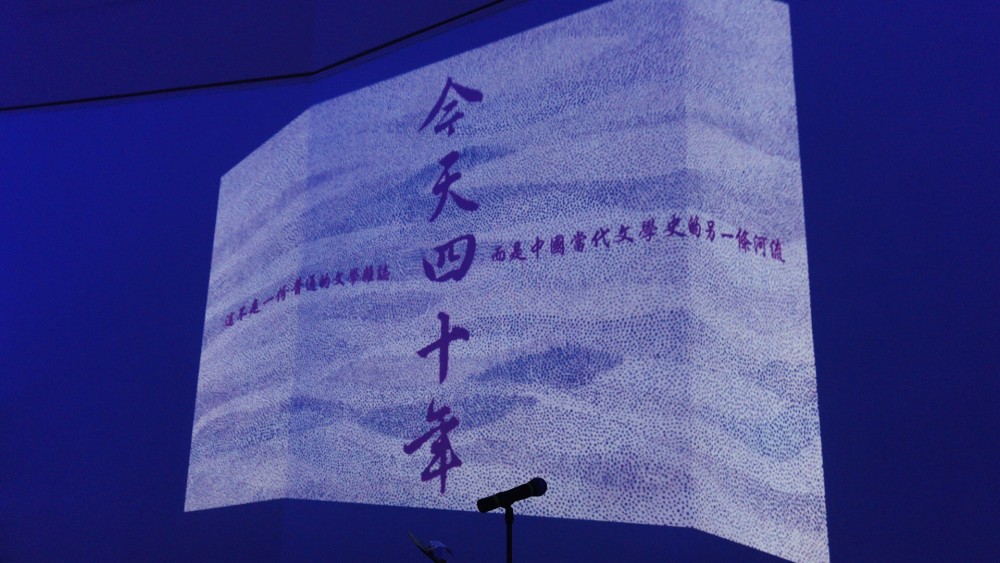 今天四十年
這不是一份普通的文學雜誌
而是中國當代文學史的另一條河流